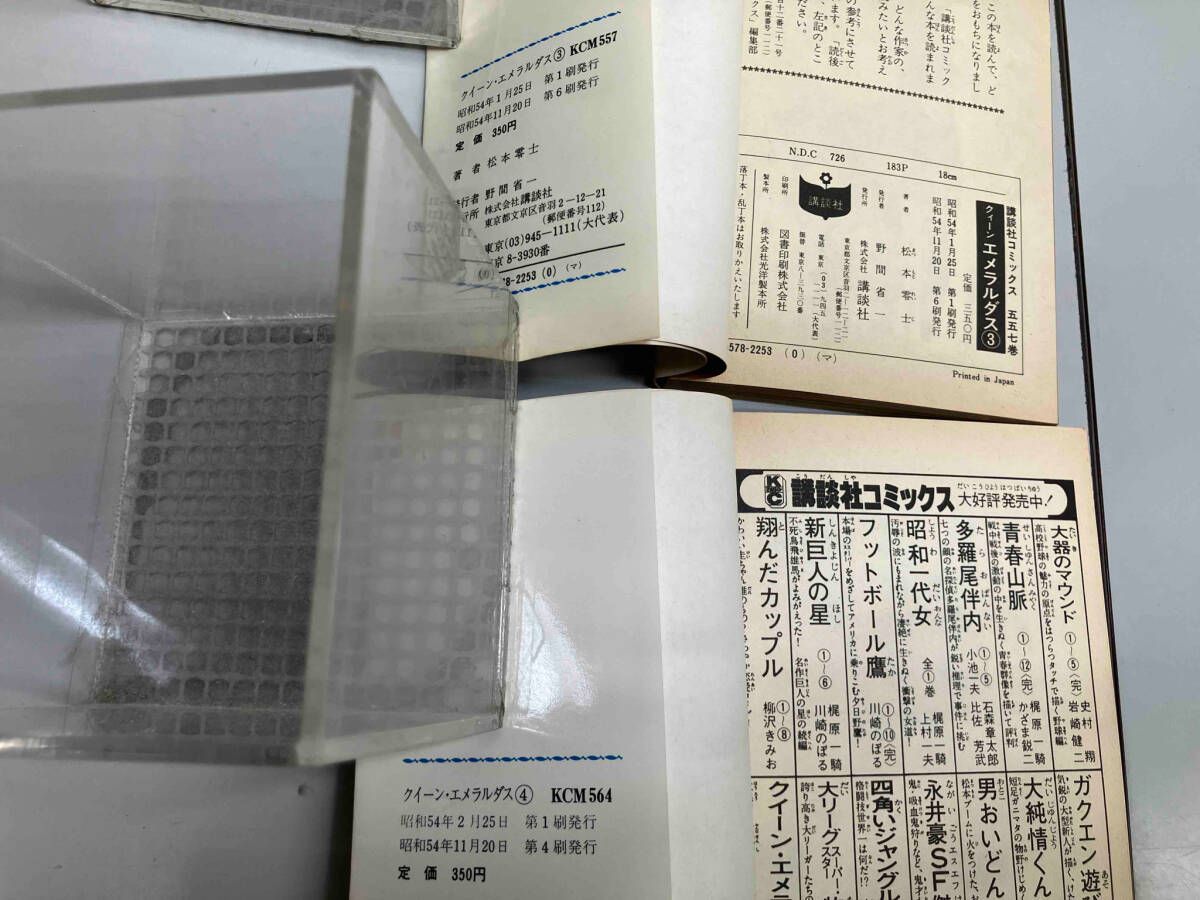 クイーン・エメラルダス③ KCM557
昭和54年1月25日 第1刷発行
昭和54年11月20日 第6刷発行
定価 350円
著者 松本零士
発行者 野間省一
株式会社講談社
東京都文京区音羽2-12-21
(郵便番号112)
東京(03)945-1111(大代表)
京8-3930番
578-2253 (0) (マ)
この本を読んで、ど
をおもちになりまし
「講談社コミック
んな本を読まれま
どんな作家の、
みたいとお考え
の参考にさせて
ます。「読後
、左記のとこ
ださい。
十二番二十一号
(郵便番号一一二)
クス」編集部
N.D.C 726 183P 18cm
講談社コミックス 五五七巻
クイーン エメラルダス③
定価 三五〇円
昭和54年1月25日 第1刷発行
昭和54年11月20日 第6刷発行
著者 松本零士
発行者 野間省一
発行所 株式会社 講談社
東京都文京区音羽二-一二-二一
(郵便番号一一二)
電話 東京(03)九四五
一一一一(大代表)
振替 東京八-三九三〇番
講談社
印刷所 図書印刷株式会社
製本所 株式会社光洋製本所
落丁本・乱丁本はお取りかえいたします
578-2253 (0) (マ)
Printed in Japan
KC 講談社コミックス 大好評発売中!
大器のマウンド ①〜⑤(完) 史村翔 岩崎健二
高校野球の魅力の原点をはつらつタッチで描く野球編!
青春山脈 ①〜⑫(完) 梶原一騎 かざま鋭二
戦中戦後の激動の中を生きぬく青春群像を描いて評判!
多羅尾伴内 ①〜⑤ 小池一夫 比佐芳武 石森章太郎
七つの顔の名探偵多羅尾伴内が鋭い推理で事件に挑む
昭和一代女 全①巻 梶原一騎 上村一夫
汚辱の波にもまれながら凄絶に生きぬく衝撃の女道!
フットボール鷹 ①〜⑩(完) 川崎のぼる
新巨人の星 ①〜⑥ 梶原一騎 川崎のぼる
不死鳥飛雄馬がよみがえった! 名作巨人の星の続編
翔んだカップル ①〜⑧ 柳沢きみお
ガクエン遊び
大純情くん
男おいどん
永井豪SF傑
四角いジャングル
格闘技世界一は何だ!?
大リーグスター
クイーン・エメラ
クイーン・エメラルダス④ KCM564
昭和54年2月25日 第1刷発行
昭和54年11月20日 第4刷発行
定価 350円